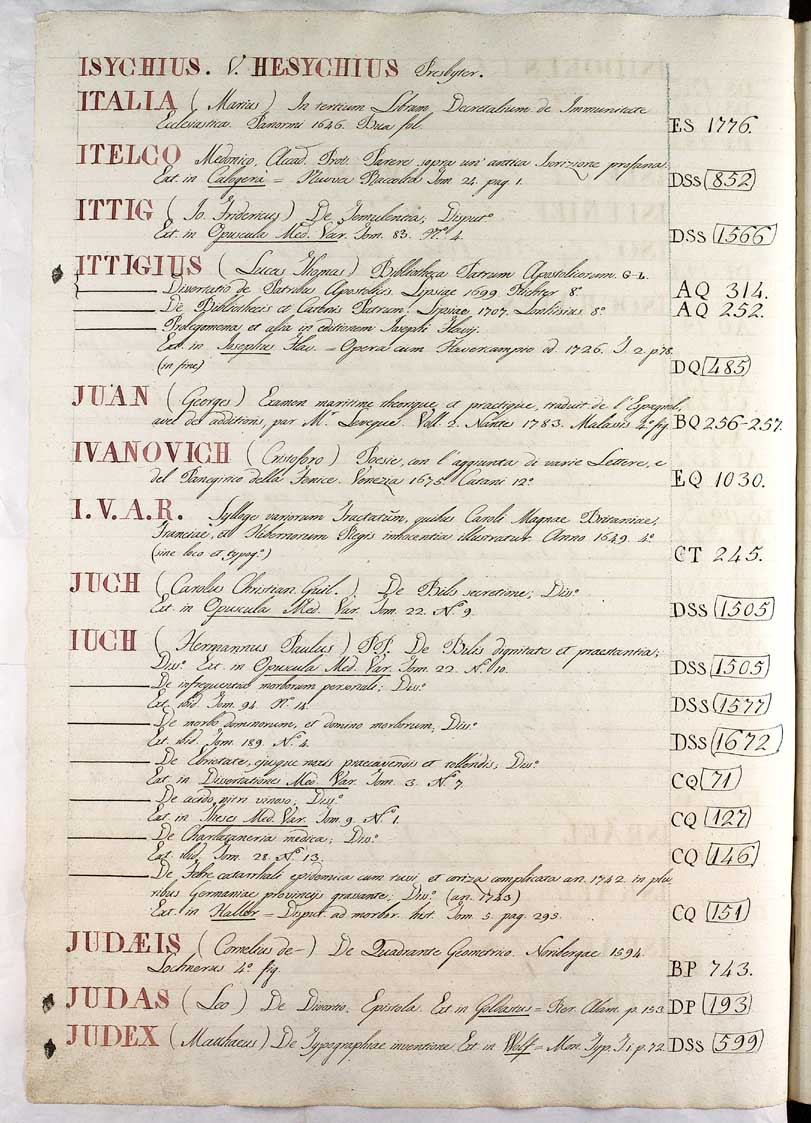 ISYCHIUS. V. HESYCHIUS Presbyter.
ITALIA (Marius) In tertium Librum Decretalium de Immunitate
Ecclesiastica. Panormi 1646. Bua fol. ES 1776.
ITELCO Medonico, Accad. Prot. Parere sopra un' antica Iscrizione profana.
Ext. in Calogerà = Nuova Raccolta Tom. 24. pag. 1. DSS 852
ITTIG (Jo. Fridericus) De Temulentia; Disputº
Ext. in Opuscula Med. Var. Tom. 83. Nº 4. DSS 1566
ITTIGIUS (Luca Thomas) Bibliotheca Patrum Apostolicorum. G-L.
Dissertatio de Patribus Apostolicis. Lipsiae 1699. Richter 8º AQ 314.
De Bibliothecis et Catenis Patrum. Lipsiae 1707. Lankisius 8º AQ 252.
Prolegomena et alia in editionem Josephi Flavij.
Ext. in Josephus Flav. = Opera cum Havercampio ed. 1726. T. 2. p 78.
(in fine) DQ 485
JUAN (Georges) Examen maritime theorique, et practique, traduit de l'Espagnol,
avec des additions, par Mr. Leveque. Voll. 2. Nantes 1783. Malassis 4º fig. BQ 256-257.
IVANOVICH (Cristoforo) Poesie, con l'aggiunta di varie Lettere, e
del Panegirico della Fenice. Venezia 1675. Catani 12º EQ 1030.
I.V.A.R. Sylloge variorum Tractatuũ, quibus Caroli Magnae Britaniae,
Franciae, et Hibernorum Regis innocentia illustratur. Anno 1649. 4º
(sine loco et typogº) CT 245.
JUCH (Carolus Christian. Guil.) De Bilis secretione; Disº
Ext. in Opuscula Med. Var. Tom. 22. Nº 9. DSS 1505
IUCH (Hermannus Paulus) PP. De Bilis dignitate et praestantia;
Disº Ext. in Opuscula Med. Var. Tom. 22. Nº 10. DSS 1505
De infrequentia morborum personali; Disº
Ext. ibid. Tom. 94. Nº 14. DSS 1577
De morbo dominorum, et domino morborum; Disº
Ext. ibid. Tom. 189. Nº 4. DSS 1672
De Ebrietate, ejusque noxis praecavendis et tollendis; Disº
Ext. in Dissertationes Med. Var. Tom. 3. Nº 7. CQ 71
De acido nitri vinoso; Disº
Ext. in Theses Med. Var. Tom. 9. Nº 1. CQ 127
De Charlataneria medica; Disº
Ext. ibid. Tom. 28. Nº 13. CQ 146
De Febre catarrhali epidemica cum tussi, et coriza complicata an. 1742. in plu
ribus Germaniae provincijs grassante; Disº (an. 1743)
Ext. in Haller = Disput. ad morbor. hist. Tom. 5. pag. 293. CQ 151
JUDÆIS (Cornelius de-) De Quadrante Geometrico. Noribergae 1594.
Lochnerus 4º fig. BP 743.
JUDAS (Leo) De Divortio, Epistola. Ext. in Goldastus = Rer. Alam. p. 153. DP 193
JUDEX (Matthaeus) De Typographiae inventione. Ext. in Wolf = Mon. Typ. T. 1. p. 72. DSS 599